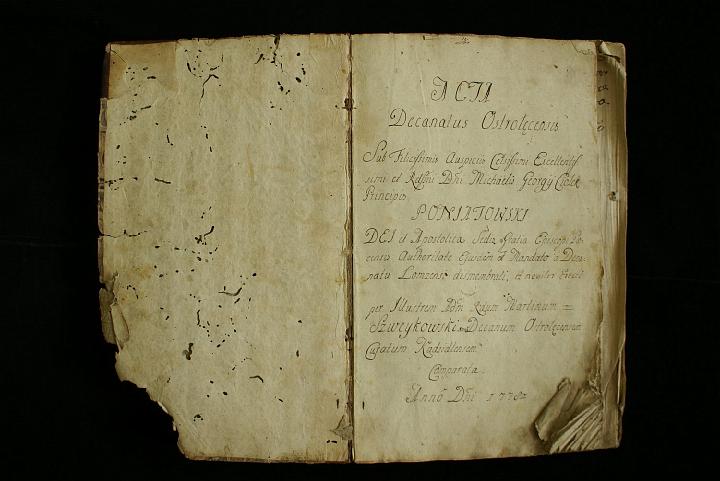 ACTA
Decanatus Ostrolęcensis
Sub Felicissimis Auspiciis Celsissimi Excellentiss
imi et Rdssmi Dni Michaelis Georgÿ Ciołek
Principis
PONIATOWSKI
DEI et Apostolicæ Sedis Gratia Episcopi Plo
censis Authoritate Ejusdem et Mandato a Deca
natu Lomzensi dismembrati, et noviter Erecti
per Illustrem Dnm Martinum =
Szweykowski Decanum Ostrolęcensem
Curatum Kadzidlensem
Comparata
Anno Dni